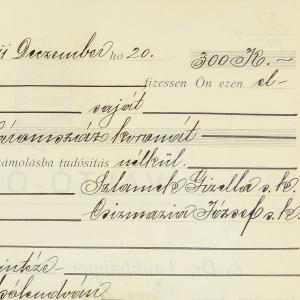 Deczember hó 20. 300 K. ~
fizessen Ön ezen el-
saját
áromszáz koronát
zámolásba tudósítás nélkül.
Szlamek Gizella s. k.
Csizmazia József s. k.
intéze-